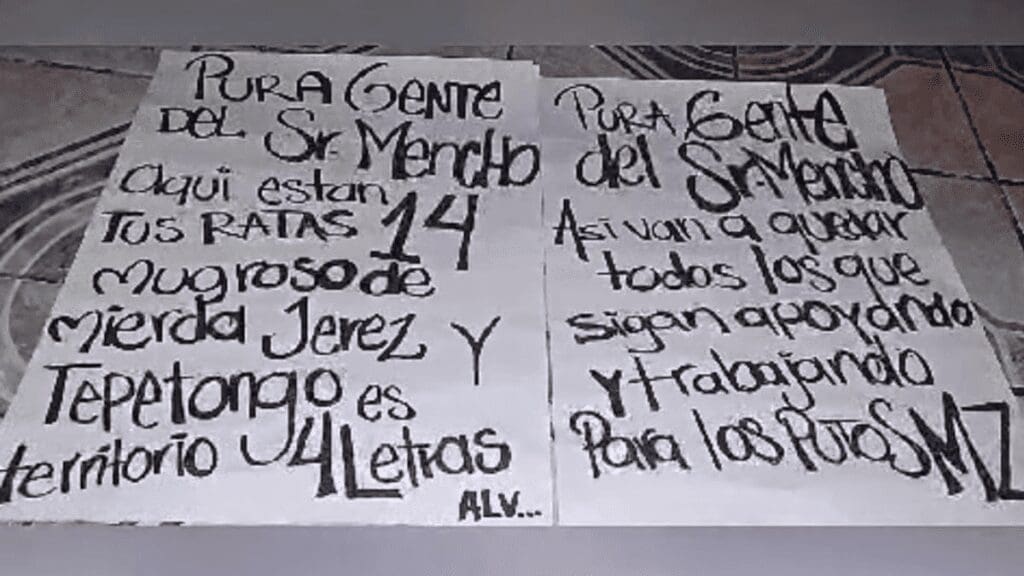 PURA GENTE
DEL Sr. Mencho
Aqui estan
TUS RATAS 14
mugroso de
mierda Jerez y
Tepetongo es
territorio 4 Letras
ALV...
PURA Gente
del Sr. Mencho
Asi van a quedar
todos los que
sigan apoyando
y trabajando
Para los PUTOS MZ